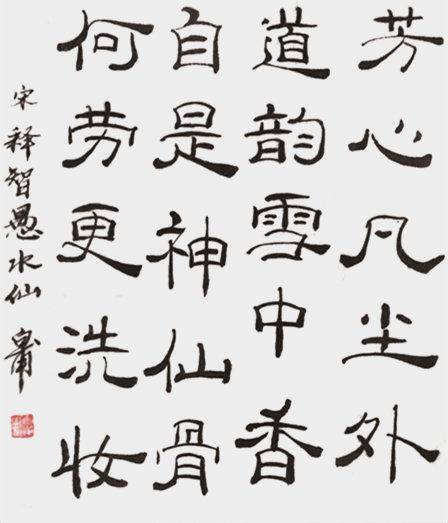 芳心凡尘外
道韵雪中香
自是神仙骨
何劳更洗妆
宋释智愚水仙